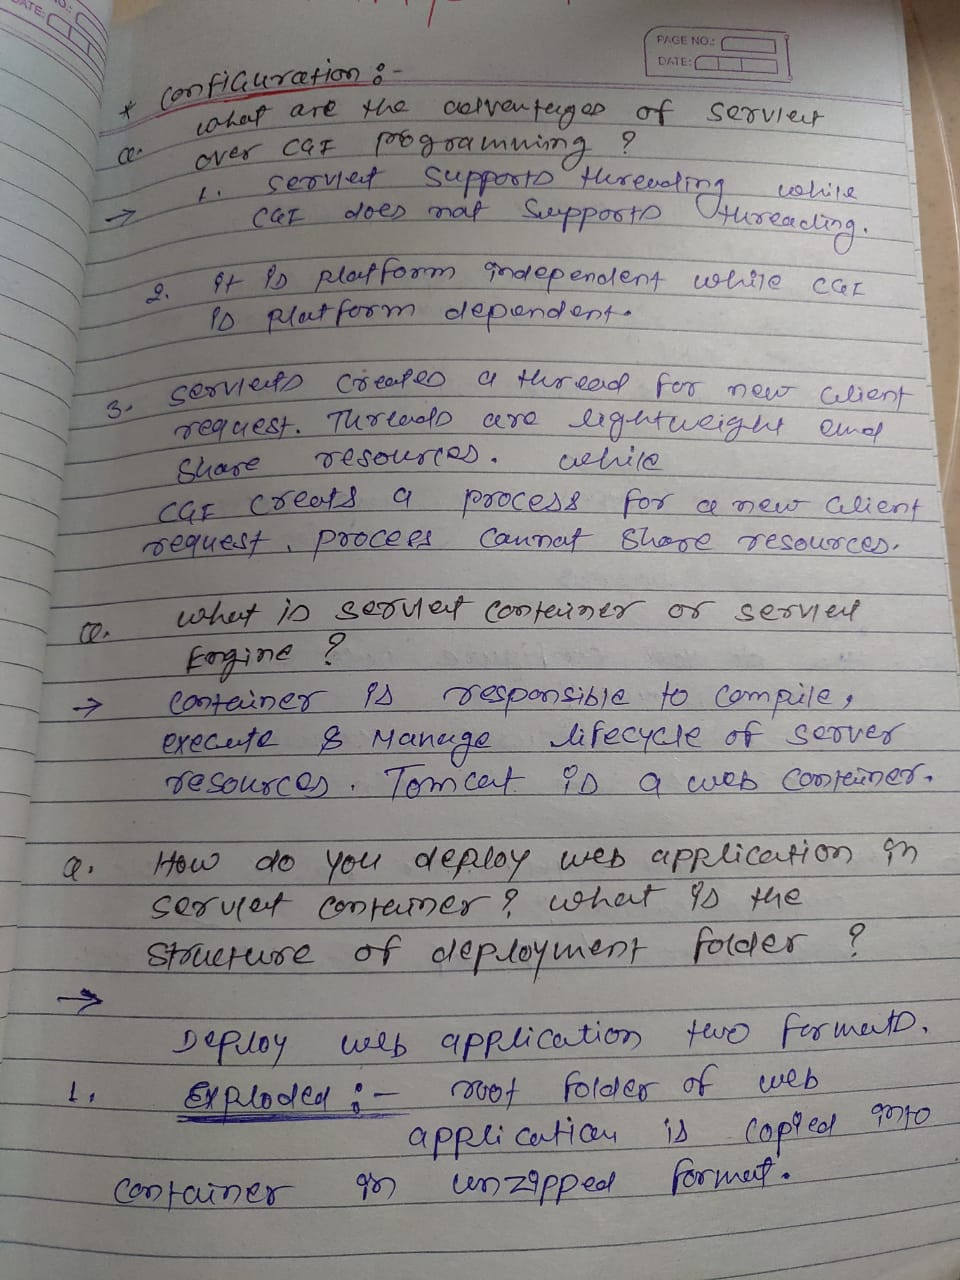 PAGE NO.:
DATE:
* Configuration :-
Q. What are the advantages of Servlet
over CGI programming ?
→ 1. Servlet Supports threading while
CGI does not Supports threading.
2. It is platform independent while CGI
is platform dependent.
3. Servlets creates a thread for new client
request. Threads are lightweight and
Share resources. while
CGI creats a process for a new client
request. process cannot Share resources.
Q. What is servlet container or servlet
Engine ?
→ Container is responsible to compile,
execute & Manage lifecycle of server
resources. Tomcat is a web container.
Q. How do you deploy web application in
servlet container ? what is the
structure of deployment folder ?
→
Deploy web application two formats.
1. Exploded :- root folder of web
application is copied into
container in unzipped format.